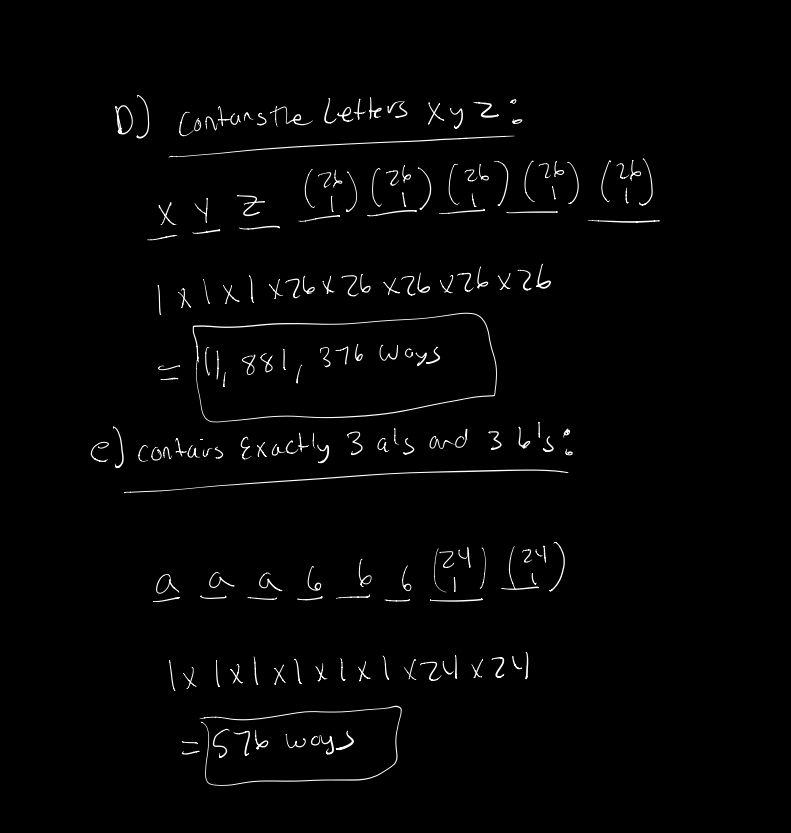 D) contansthe Letters x y z:
x y z (26 1) (26 1) (26 1) (26 1) (26 1)
1 x 1 x 1 x 26 x 26 x 26 x 26 x 26
= 11, 881, 376 ways
e) contais Exactly 3 a's and 3 b's:
a a a b b b (24 1) (24 1)
1 x 1 x 1 x 1 x 1 x 1 x 24 x 24
= 576 ways